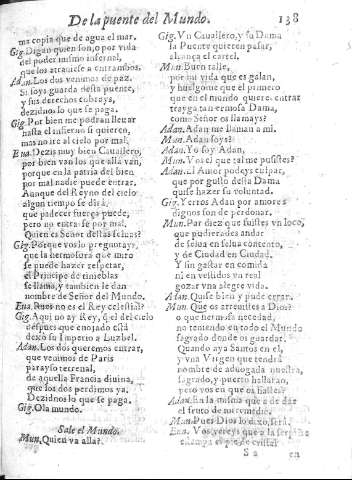 De la puente del Mundo. 138
ma copia que de agua el mar.
Gig. Digan quien son, o por vida
del poder mismo infernal,
que los atrauiesse a entrambos.
Adan. Los dos venimos de paz.
Si soys guarda desta puente,
y sus derechos cobrays,
dezidnos lo que se paga.
Gig. Por bien me podran lleuar
hasta el infierno si quieren,
mas no ire al cielo por mal.
Eua. Dezis muy bien Cauallero,
por bien van los que allà van,
porque en la patria del bien
por mal nadie puede entrar.
Aunque del Reyno del cielo
algun tiempo se dirà,
que padecer fuerça puede,
pero no entrase por mal.
Quien es Señor destas seluas?
Gig. Porque vos lo preguntays,
que la hermosura que miro
se puede hazer respetar,
el Principe de tinieblas
se llamo, y tambien le dan
nombre de Señor del Mundo.
Eua. Pues no es el Rey celestial?
Gig. Aqui no ay Rey, q̃ el del cielo
despues que enojado està
dexò su Imperio a Luzbel.
Adan. Los dos queremos entrar,
que venimos de Paris
parayso terrenal,
de aquella Francia diuina,
que los dos perdimos ya,
Dezidnos lo que se paga.
Gig. Ola mundo.
Sale el Mundo.
Mun. Quien va alla?
Gig. Vn Cauallero, y su Dama
la Puente quieren passar,
alcança el cartel.
Mun. Buen talle,
por mi vida que es galan,
y huelgome que el primero
que en el mundo quiere entrar
trayga tan ermosa Dama,
como Señor os llamays?
Adan. Adan me llaman a mi.
Mun. Adan soys?
Adan. Yo soy Adan,
Mun. Vos el que tal me pusistes?
Adan. El Amor podeys culpar,
que por gusto desta Dama
quise hazer su voluntad.
Gig. Yerros Adan por amores
dignos son de perdonar.
Mun. Par diez que fuistes vn loco,
que pudierades andar
de selua en selua contento,
y de Ciudad en Ciudad.
Y sin gastar en comida
ni en vestidos vn real
gozar vna alegre vida.
Adan. Quise bien y pude errar.
Mun. Que os atreuistes a Dios?
o que hermosa necedad,
no teniendo en todo el Mundo
sagrado donde os guardar.
Quando aya Santos en el,
y vna Virgen que tendrà
nombre de aduogada nuestra,
sagrado, y puerto hallaran,
pero vos en que os hallastes?
Adan. En la misma que a de dar
el fruto de mi remedio.
Mun. Pues Dios lo dixo, serà.
Eua. Vos vereys que a la serpiente
el pie de cristal
S 2 en